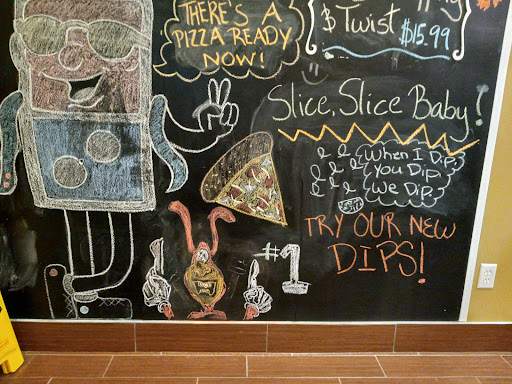 THERE'S A
PIZZA READY
NOW!
& Twist $15.99
Slice, Slice Baby!
When I Dip
You Dip
We Dip
TRY OUR NEW
DIPS!
#1